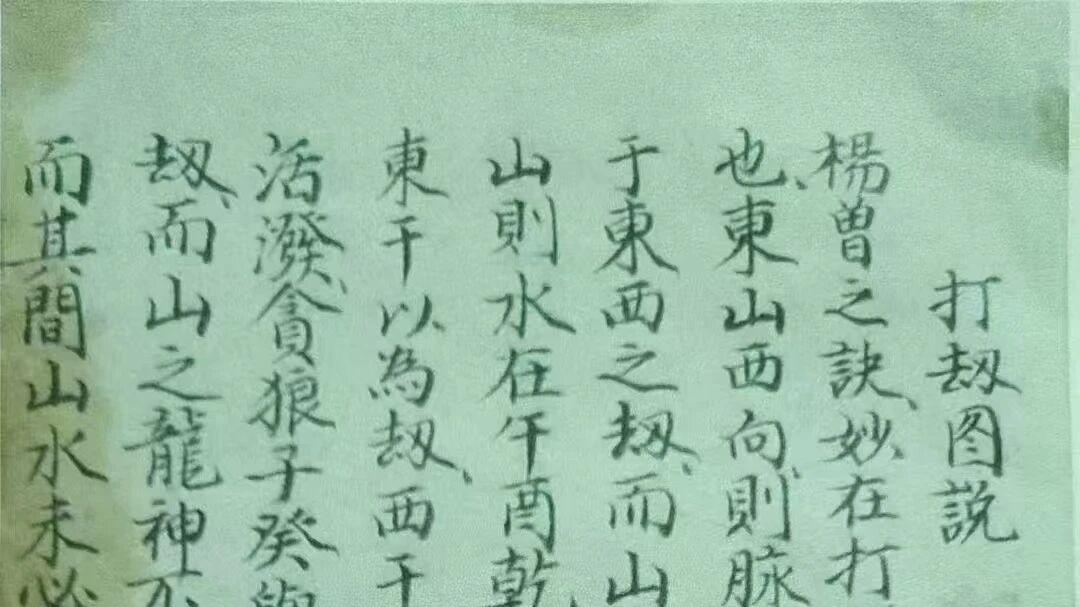 打刼图説
楊曽之訣、妙在打
也、東山西向、則脉
于東西之刼、而山
山則水在午酉乾
東干以為刼、西干
活潑、貪狼子癸
刼、而山之龍神不
而其間山水未必